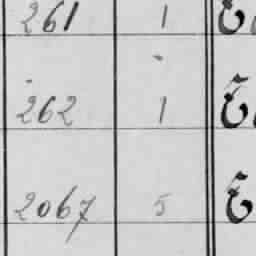 261 1
262 1
2067 5